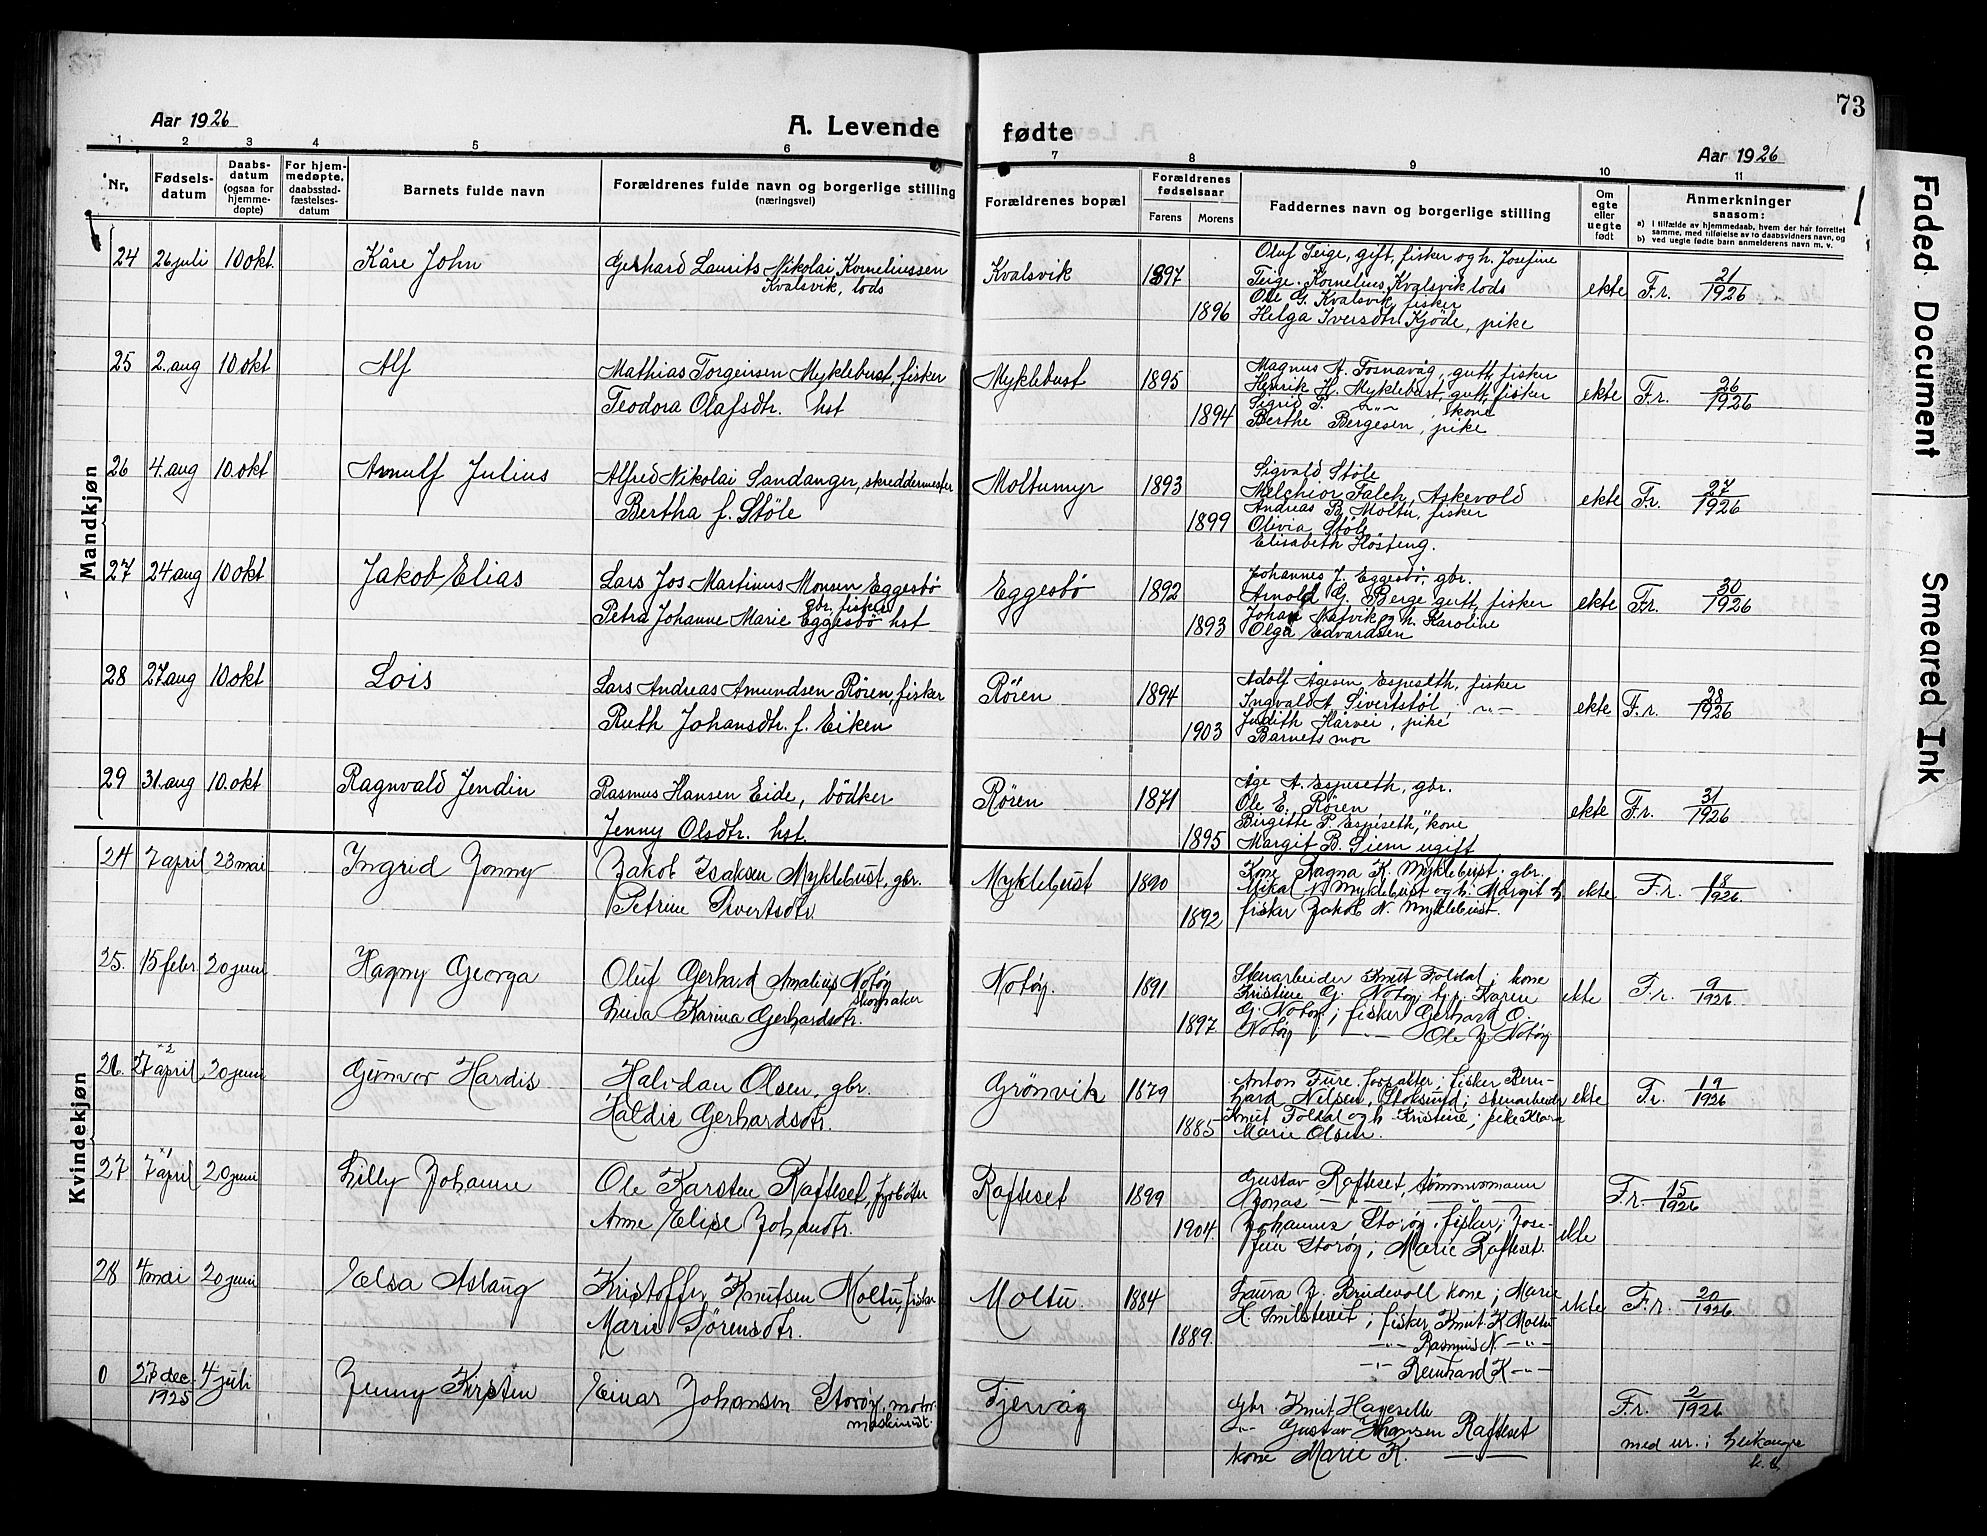 73
Aar 1926
A. Levende fødte
Aar 1926
1 2 3 4 5 6 7 8 9 10 11
Nr.
Fødsels-
datum
Daabs-
datum
(ogsaa for
hjemme-
døpte)
For hjem-
medøpte,
daabsstad-
fæstelses-
datum
Barnets fulde navn
Forældrenes fulde navn og borgerlige stilling
(næringsvei)
Forældrenes bopæl
Forældrenes
fødselsaar
Farens Morens
Faddernes navn og borgerlige stilling
Om
egte
eller
uegte
født
Anmerkninger
saasom:
a) I tilfælde av hjemmedaab, hvem der har forrettet
samme, med tilføielse av to daabsvidners navn, og
b) ved uegte fødte barn anmelderens navn m. v.
Mandkjøn
24 26 juli 10 okt. Kåre John
Gerhard Laurits Nikolai Korneliussen
Kvalsvik, lods
Kvalsvik 1897
1896
Oluf Teige, gift, fisker og h. Josefine
Teige. Kornelius Kvalsvik lods
Ole G. Kvalsvik, fisker
Helga Iversdtr. Kjøde, pike
ekte F.r. 21/1926
25 2. aug 10 okt Alf
Mathias Torgeirsen Myklebust, fisker
Teodora Olafsdtr. hst
Myklebust 1895
1894
Magnus A. Fosnavåg, gutt, fisker
Henrik H. Myklebust, gutt, fisker
Sigrid P. -"- , kone
Berthe Bergesen, pike
ekte F.r. 26/1926
26 4. aug 10. okt Arnulf Julius
Alfred Nikolai Sandanger, skreddermester
Bertha f. Støle
Moltumyr 1893
1899
Sigvald Støle
Melchior Falch, Askevold
Andreas B. Moltu, fisker
Olevia Støle
Elisabeth Høsteng.
ekte F.r. 27/1926
27 24 aug 10 okt Jakob Elias
Lars Jos Martinus Monsen Eggesbø
gbr. fisker
Petra Johanne Marie Eggesbø hst
Eggesbø 1892
1893
Johannes J. Eggesbø, gbr.
Arnold G. Berge gutt, fisker
Johan Nefvik og h. Karoline
Olga Edvardsen
ekte F.r. 30/1926
28 27 aug 10 okt Lois
Lars Andreas Amundsen Røren, fisker
Ruth Johansdtr. f. Eiken
Røren 1894
1903
Adolf Ågesen Espeseth, fisker
Ingvald A Sivertstøl, -"-
Judith Hårvei, pike
Barnets mor
ekte F.r. 28/1926
29 31. aug 10. okt Ragnvald Jendin
Rasmus Hansen Eide, bødker
Jenny Olsdtr. hst.
Røren 1871
1895
Åge A. Espeseth, gbr.
Ole E. Røren "
Birgitte P. Espeseth, kone
Margit B. Siem ugift
ekte F.r. 31/1926
Kvindekjøn
24 7 april 23 mai Ingrid Jonny
Jakob Isaksen Myklebust, gbr.
Petrine Sivertsdtr.
Myklebust 1890
1892
Kone Ragna K. Myklebust; gbr.
Mikal N. Myklebust og h. Margit;
fisker Jakob N. Myklebust.
ekte F.r. 18/1926.
25. 15 febr 20 juni Hagny Georga
Oluf Gerhard Amalius Notøy
skomaker
Lina Karina Gerhardsdtr.
Notøy. 1891
1897
Stenarbeider Knut Foldal; kone
Kristine G. Notøy; Karen
G. Notøy; fisker Gerhard O.
Notøy; -"- Ole J Notøy
ekte F.r. 9/1926.
26. 27 april 20 juni Gunvor Hardis
Halvdan Olsen, gbr.
Haldis Gerhardsdtr.
Grønvik 1879
1885
Anton Fure, forpakter; fisker Bern-
hard Nilsen, Stoksund; stenarbeider
Knut Foldal og h. Kristine; pike Klara
Marie Olsen.
ekte F.r. 19/1926
27 7 april 20 juni Lilly Johanne
Ole Karsten Rafteset, fyrbøter
Anne Elise Johansdtr.
Rafteset 1899
1904.
Gustav Rafteset, tømmermann
Jonas
Johannes Storøy, fisker; Jose-
fine Storøy; Marie Rafteset.
ekte F.r. 15/1926
28 4 mai 20 juni Elsa Aslaug
Kristoffer Knutsen Moltu, fisker
Marie Sørensdtr.
Moltu. 1884
1889.
Laura J. Brudevoll kone; Marie
H. Smilsteset; fisker Knut K Moltu
-"- Rasmus N. -"-
-"- Reinhard K -"-
ekte F.r. 20/1926
0 27 dec. 4 juli Jenny Kirsten
1925
Einar Johansen Storøy, motor-
maskinist.
Tjervåg
Gbr. Knut Hageselle
-"- Gustav Johansen Rafteset
kone Marie K.
F.r. 2/1926
med nr. i Leikanger
Faded Document
Smeared Ink